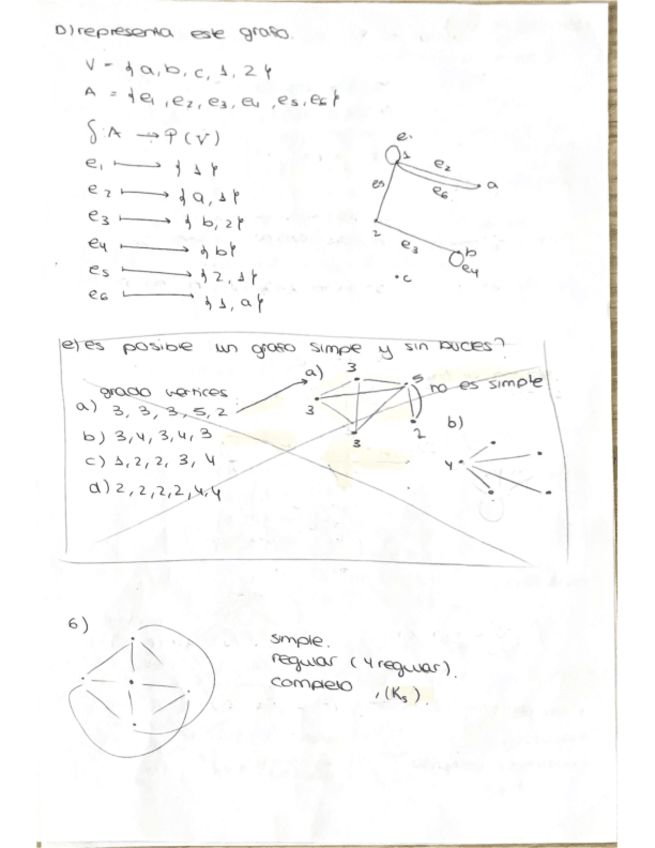 D) representa este grafo.
V = {a, b, c, 1, 2}
A = {e1, e2, e3, e4, e5, e6}
δ: A → P(V)
e1 ⟼ {1}
e2 ⟼ {a, 1}
e3 ⟼ {b, 2}
e4 ⟼ {b}
e5 ⟼ {2, 1}
e6 ⟼ {1, a}
e1
1
e2
e6
a
e5
2
e3
b
e4
c
e) es posible un grafo simple y sin bucles?
grado vertices
a) 3, 3, 3, 5, 2
b) 3, 4, 3, 4, 3
c) 1, 2, 2, 3, 4
d) 2, 2, 2, 2, 4, 4
a)
3
5
3
3
2
no es simple
b)
4
6)
simple.
regular (4 regular).
completo, (K5).